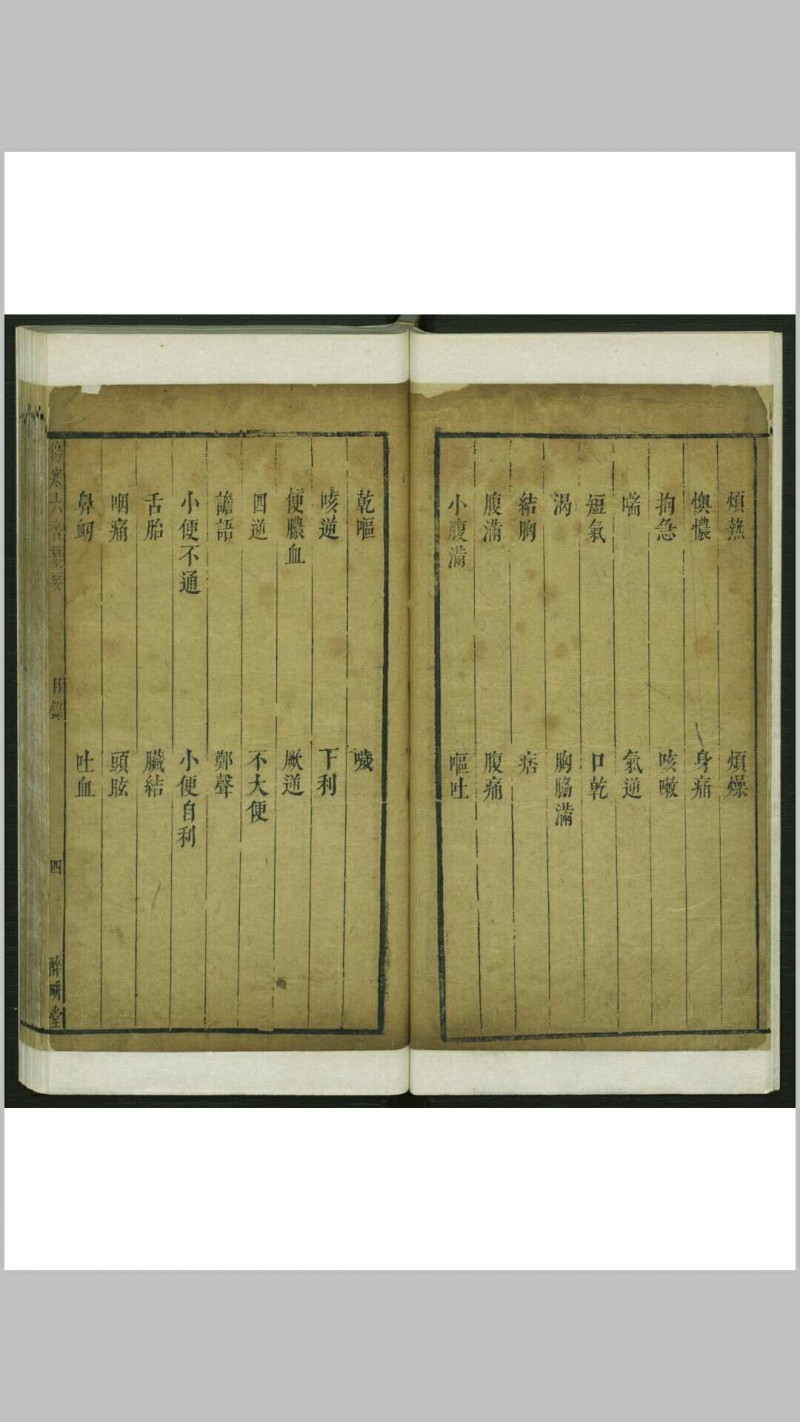 煩熱 煩燥
懊憹 身痛
拘急 咳嗽
喘 氣逆
短氣 口乾
渴 胸脇滿
結胸 痞
腹滿 腹痛
小腹滿 嘔吐
乾嘔 噦
咳逆 下利
便膿血 厥逆
四逆 不大便
譫語 鄭聲
小便不通 小便自利
舌胎 臟結
咽痛 頭眩
鼻衂 吐血
傷寒六書纂要 目錄 四 醉畊堂